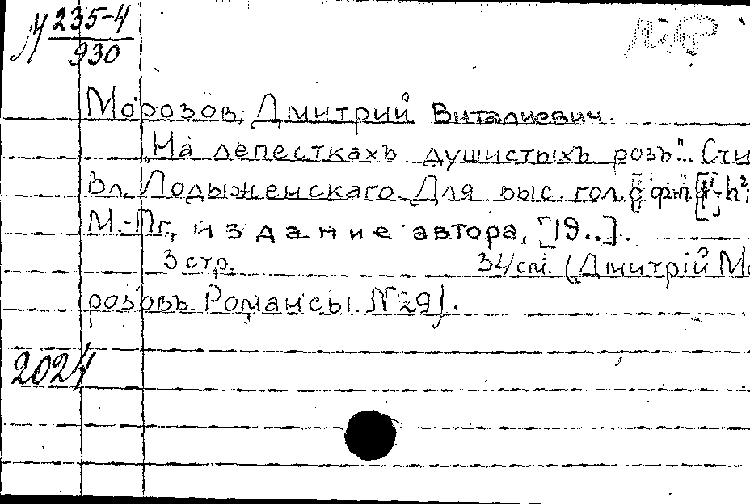 М 235-4
930
Морозов, Дмитрий Виталиевич.
"На лепесткахъ душистыхъ розъ". Сти
Вл. Лодыженскаго. Для выс. гол. с фп
М.-Пг., издание автора, [19..].
3 стр. 34 см. (Дмитрій Мо
розовъ Романсы. № 29).
2024